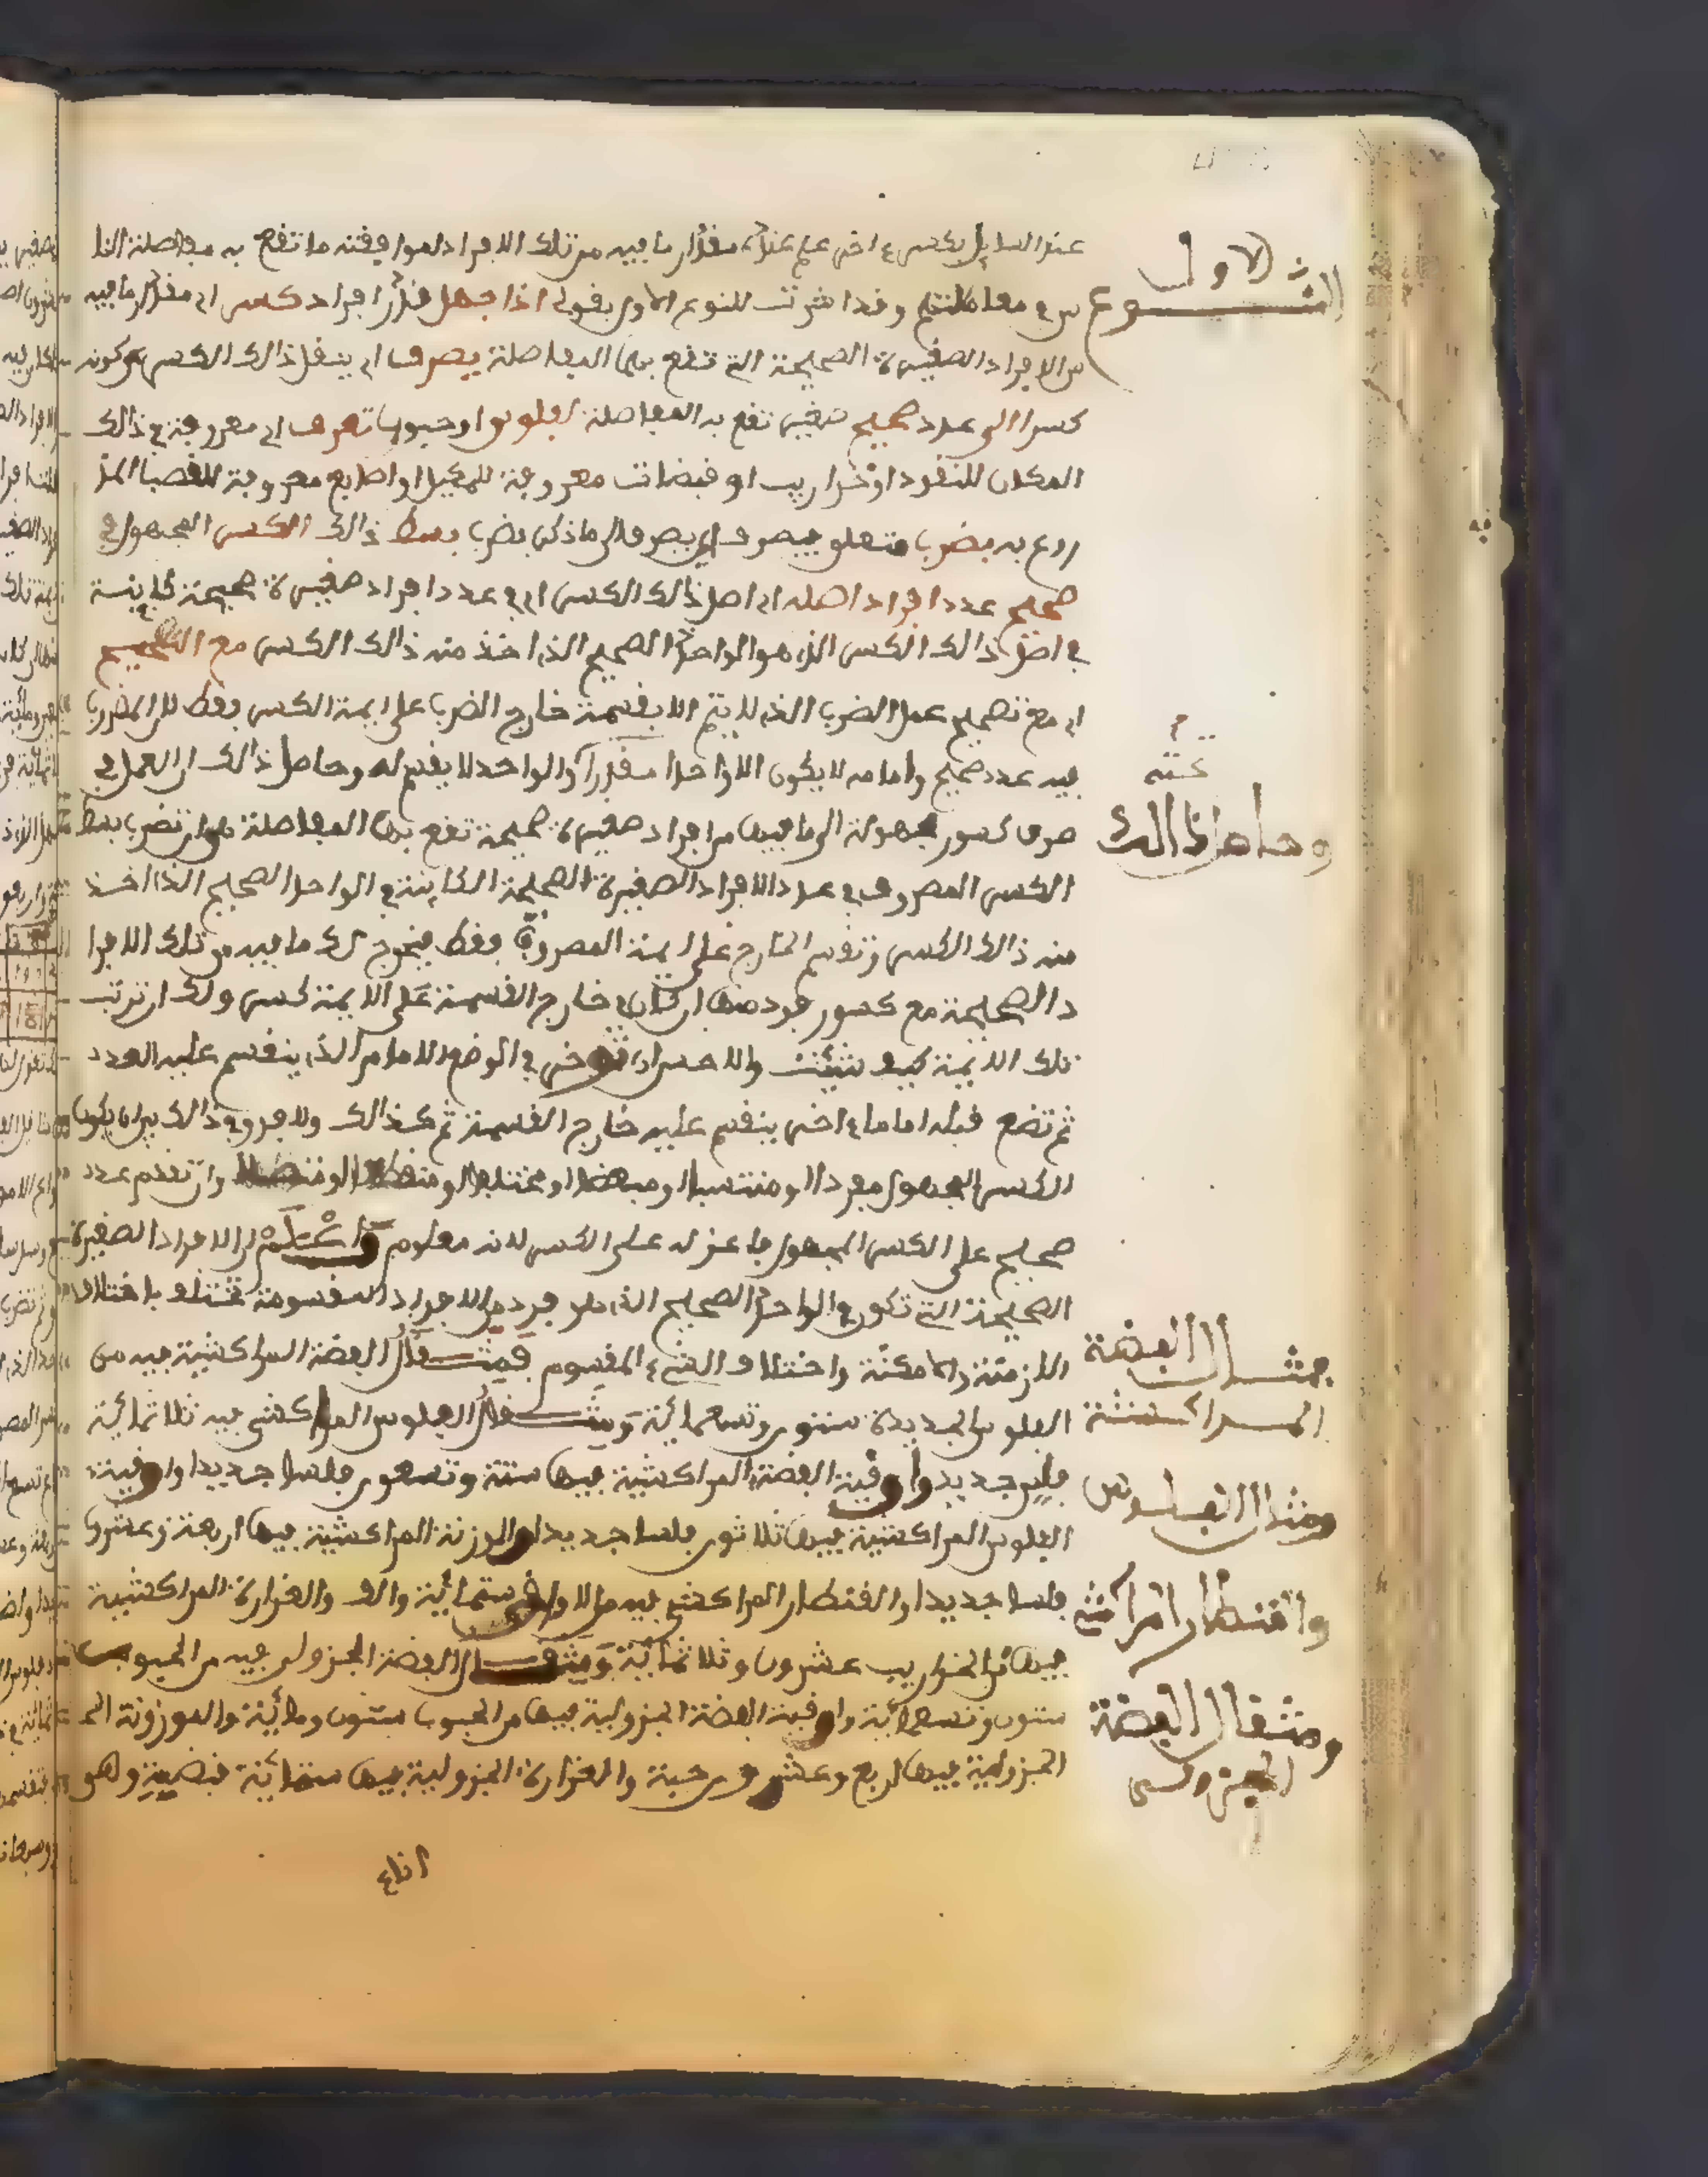 عند السايل بكسر ءاخر علم عنده مقدار ما فيه من تلك الافراد لموافقته ما تقع به مفاصلة النا
النوع الاول
س في معاملتهم وقد اشرت للنوع الاول بقولي اذا جهل قدر افراد كسر اي مقدار ما فيه
من الافراد الصغيرة الصحيحة التي تقع بها المفاصلة يصرف اي ينقل ذالك الكسر من كونه
كسرا الى عدد صحيح صغير تقع به المفاصلة كفلوس او حبوب تعرف اي معروفة في ذالك
المكان للنقود او خراريب او قبضات معروفة للمكيل او اصابع معروفة للقصبا المذ
روع به بضرب متعلق بيصرف اي يصرف الى ما ذكر بضرب بسط ذالك الكسر المجهول في
صحيح عدد افراد اصله اي اصل ذالك الكسر اي في عدد افراد صغيرة صحيحة كاينة
في اصل ذالك الكسر الذي هو الواحد الصحيح الذي اخذ منه ذالك الكسر مع التصحيح
اي مع تصحيح عمل الضرب الذي لا يتم الا بقسمة خارج الضرب على ايمة الكسر فقط لان المضروب
فيه عدد صحيح وامامه لا يكون الا واحدا مقدرا والواحد لا يقسم له وحاصل ذالك ان العمل في
وحاصل ذالك
صرف كسور مجهولة الى ما فيها من افراد صغيرة صحيحة تقع بها المفاصلة هو ان تضرب بسط
الكسر المصروف في عدد الافراد الصغيرة الصحيحة الكاينة في الواحد الصحيح الذي اخذ
منه ذالك الكسر وتقسم الخارج على ايمة المصروف فقط فيخرج لك ما فيه من تلك الافرا
د الصحيحة مع كسور فرد منها ان كان في خارج القسمة على الايمة كسر ولك ان ترتب
تلك الايمة كيف شئت والاحسن ان توخر في الوضع الامام الذي ينقسم عليه العدد
ثم تضع قبله اماما ءاخر ينقسم عليه خارج القسمة ثم كذالك ولا فرق في ذالك بين ان يكون
الكسر المجهول مفردا او منتسبا او مبعضا او مختلفا او منقطعا او متصلا وان تقدم عدد
صحيح على الكسر المجهول فاعزله على الكسر لانه معلوم واعلم ان الافراد الصغيرة
الصحيحة التي تكون في الواحد الصحيح الذي هو فرد من الافراد المقسومة تختلف باختلاف
الازمنة والامكنة واختلاف الشيء المقسوم فمثقال الفضة المراكشية فيه من
فمثقال الفضة
المراكشية
الفلوس الجديدة ستون وتسعمائة ومثقال الفلوس المراكشي فيه ثلاثمائة
فلس جديد واوقية الفضة المراكشية فيها ستة وتسعون فلسا جديدا واوقية
ومثقال الفلوس
الفلوس المراكشية فيها ثلاثون فلسا جديدا والوزنة المراكشية فيها اربعة وعشرون
فلسا جديدا والقنطار المراكشي فيه من الاواقي ستمائة والف والغرارة المراكشية
والقنطار المراكشي
فيها من الخراريب عشرون وثلاثمائة ومثقال الفضة الجزولي فيه من الحبوب
ستون وتسعمائة واوقية الفضة الجزولية فيها من الحبوب ستون ومائة والموزونة الجـ
ومثقال الفضة
الجزولي
الجزولية فيها اربع وعشرون حبة والغرارة الجزولية فيها ستمائة قبضة وهو